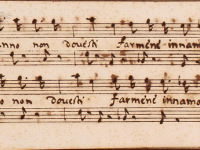 anno non dovesti farmene innam
o non dovesti farmene innamo